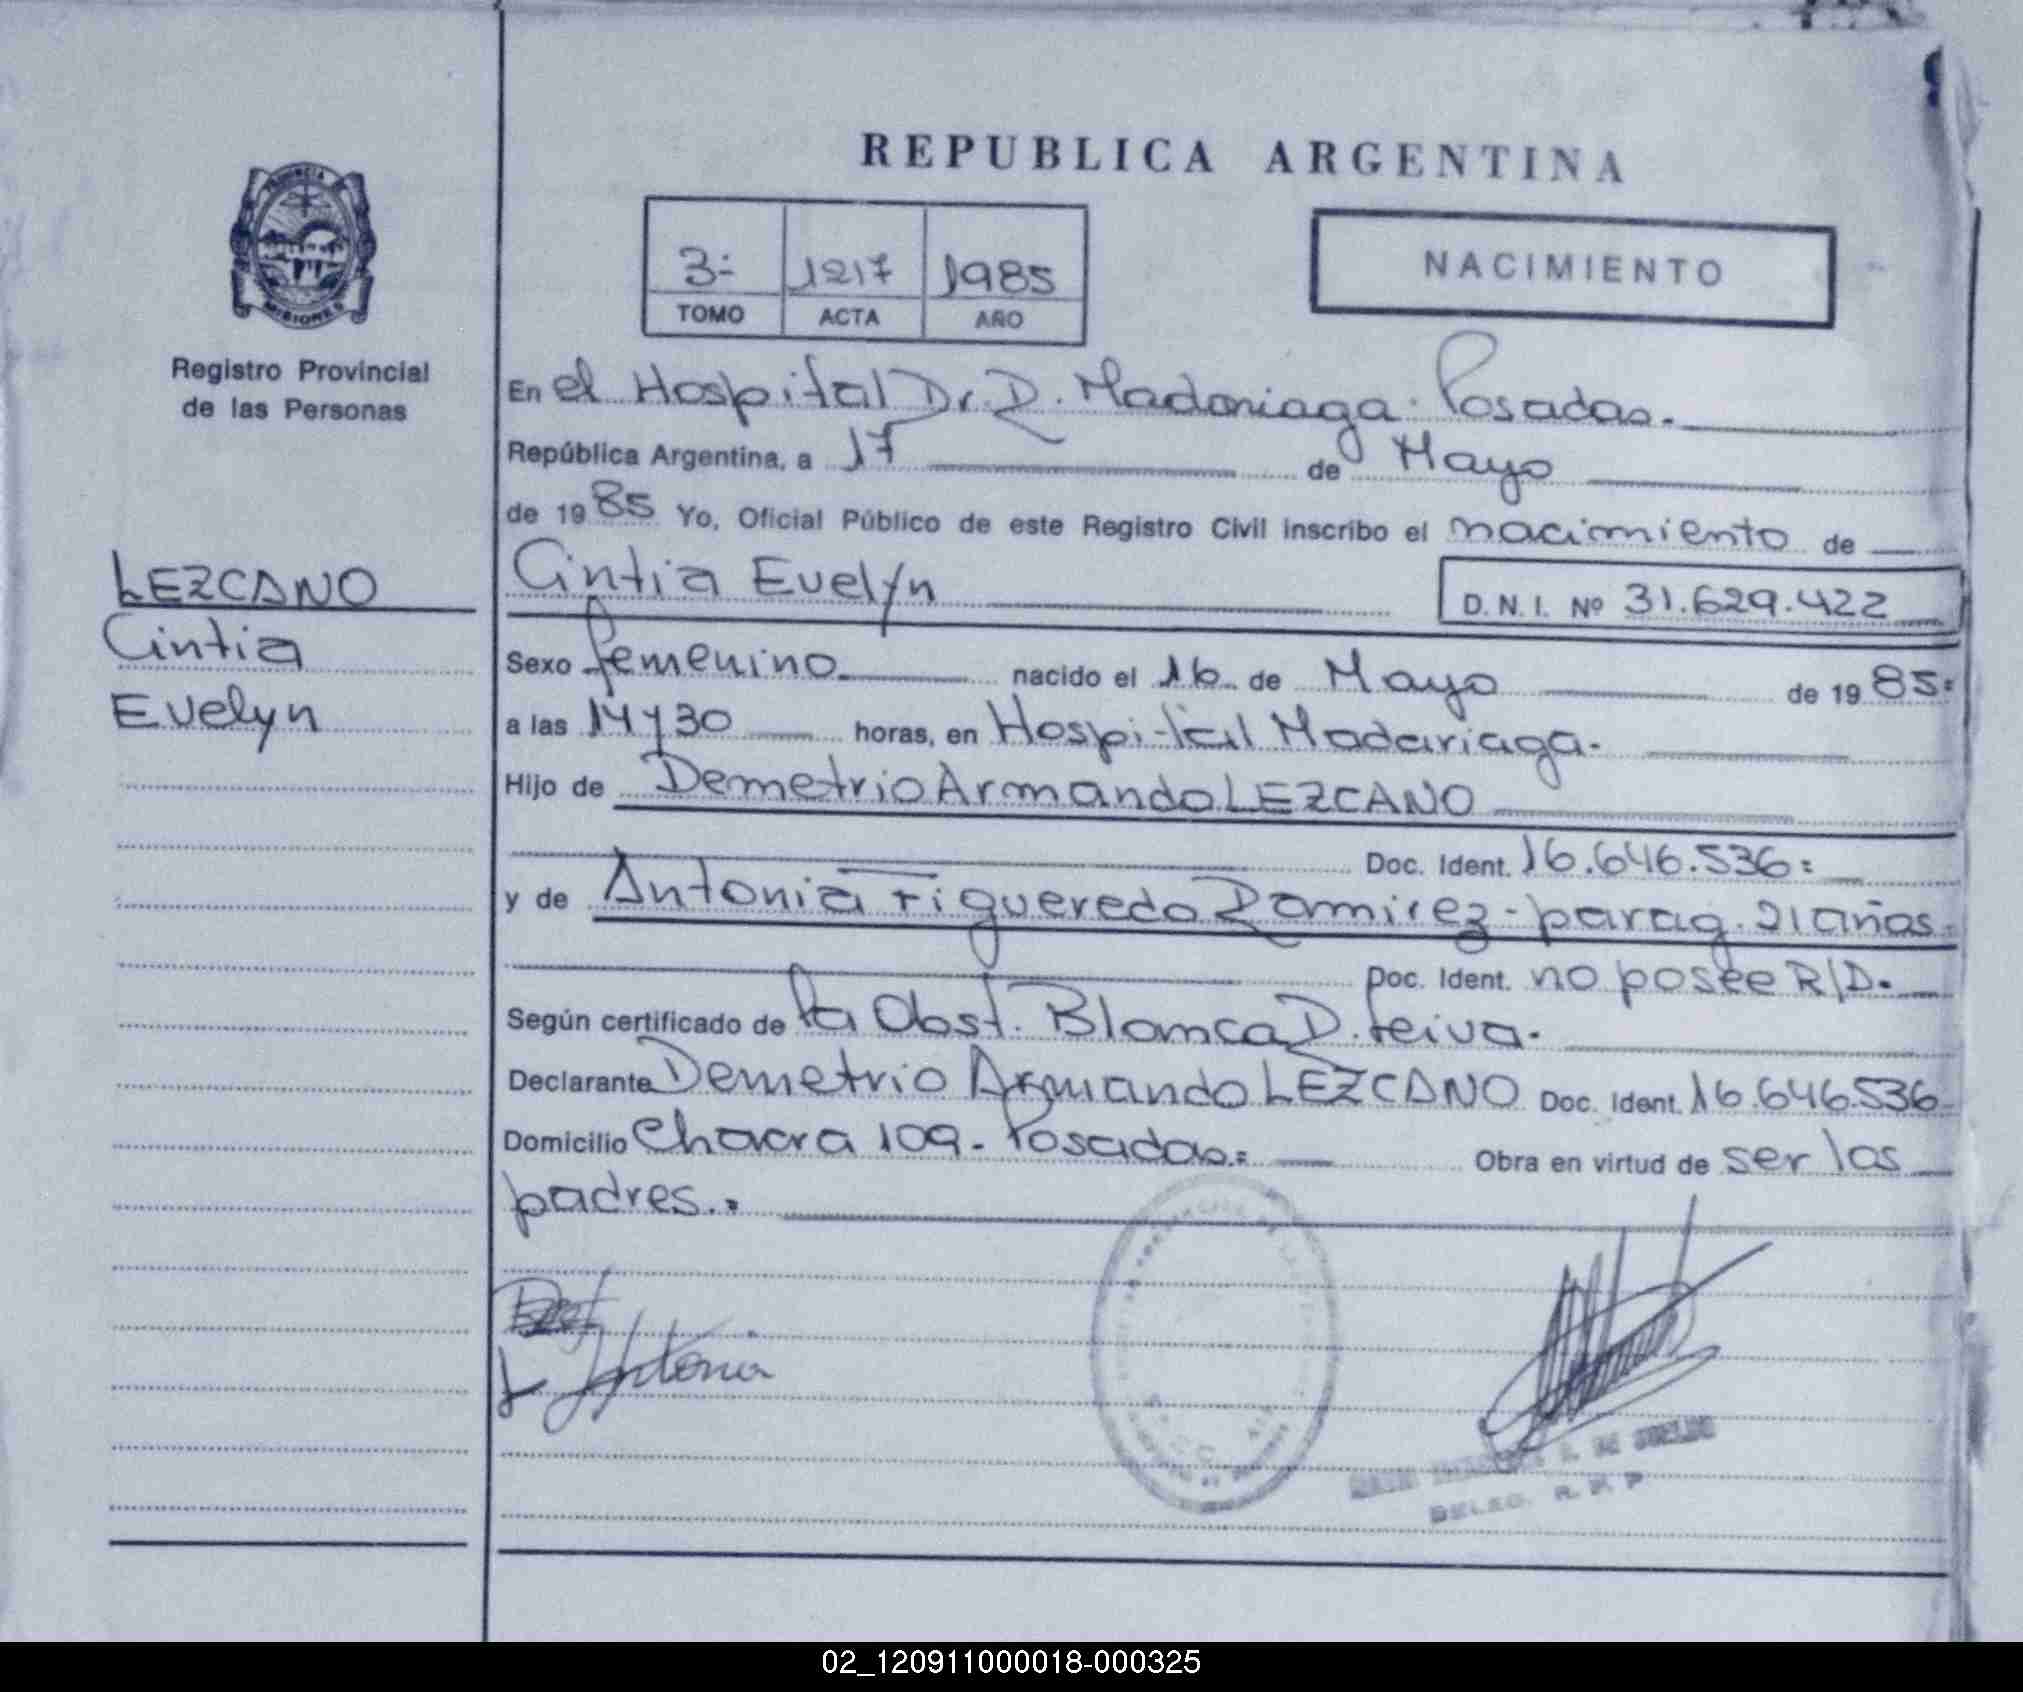 REPUBLICA ARGENTINA
PROVINCIA DE
MISIONES
Registro Provincial
de las Personas
3=
1217
1985
TOMO
ACTA
AÑO
NACIMIENTO
En el Hospital Dr. D. Madariaga. Posadas.
República Argentina, a 17 de Mayo
de 1985 Yo, Oficial Público de este Registro Civil inscribo el nacimiento de
LEZCANO
Cintia
Evelyn
Cintia Evelyn
D. N. I. Nº 31.629.422
Sexo femenino nacido el 16 de Mayo de 1985=
a las 14 y 30 horas, en Hospital Madariaga.
Hijo de Demetrio Armando LEZCANO
Doc. Ident. 16.646.536=
y de Antonia Figueredo Ramirez - parag. 21 años.
Doc. Ident. no posee R/D.
Según certificado de la Obst. Blanca D. Leiva.
Declarante Demetrio Armando LEZCANO Doc. Ident. 16.646.536
Domicilio Chacra 109 - Posadas.= Obra en virtud de ser los
padres.=
Antonia
DELEG. R. P. P.
02_120911000018-000325